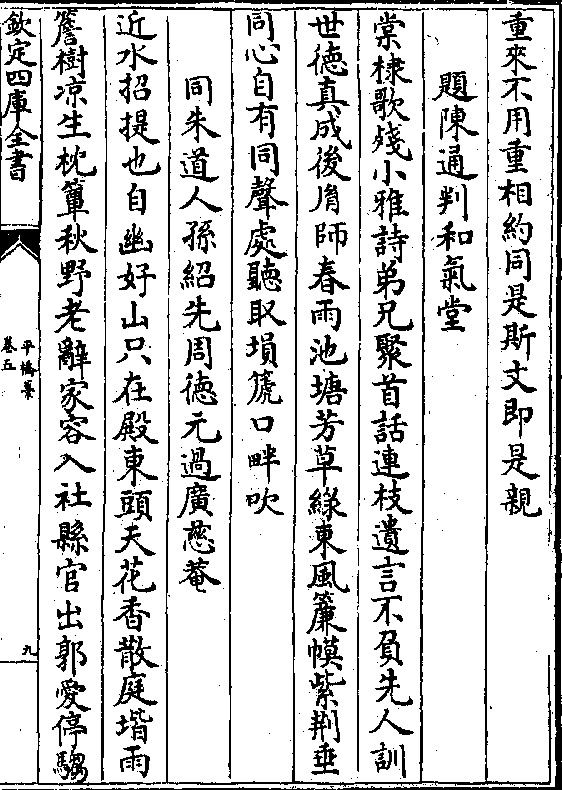 重來不用重相約同是斯文即是親
題陳通判和氣堂
棠棣歌殘小雅詩弟兄聚首話連枝遺言不負先人訓
世徳真成後𦙍師春雨池塘芳草緑東風簾幙紫荆垂
同心自有同聲處聽取塤篪口畔吹
同朱道人孫紹先周徳元過廣慈菴
近水招提也自幽好山只在殿東頭天花香散庭堦雨
簷樹凉生枕簟秋野老辭家容入社縣官出郭愛停驺
欽定四庫全書
平橋藁
卷五
九